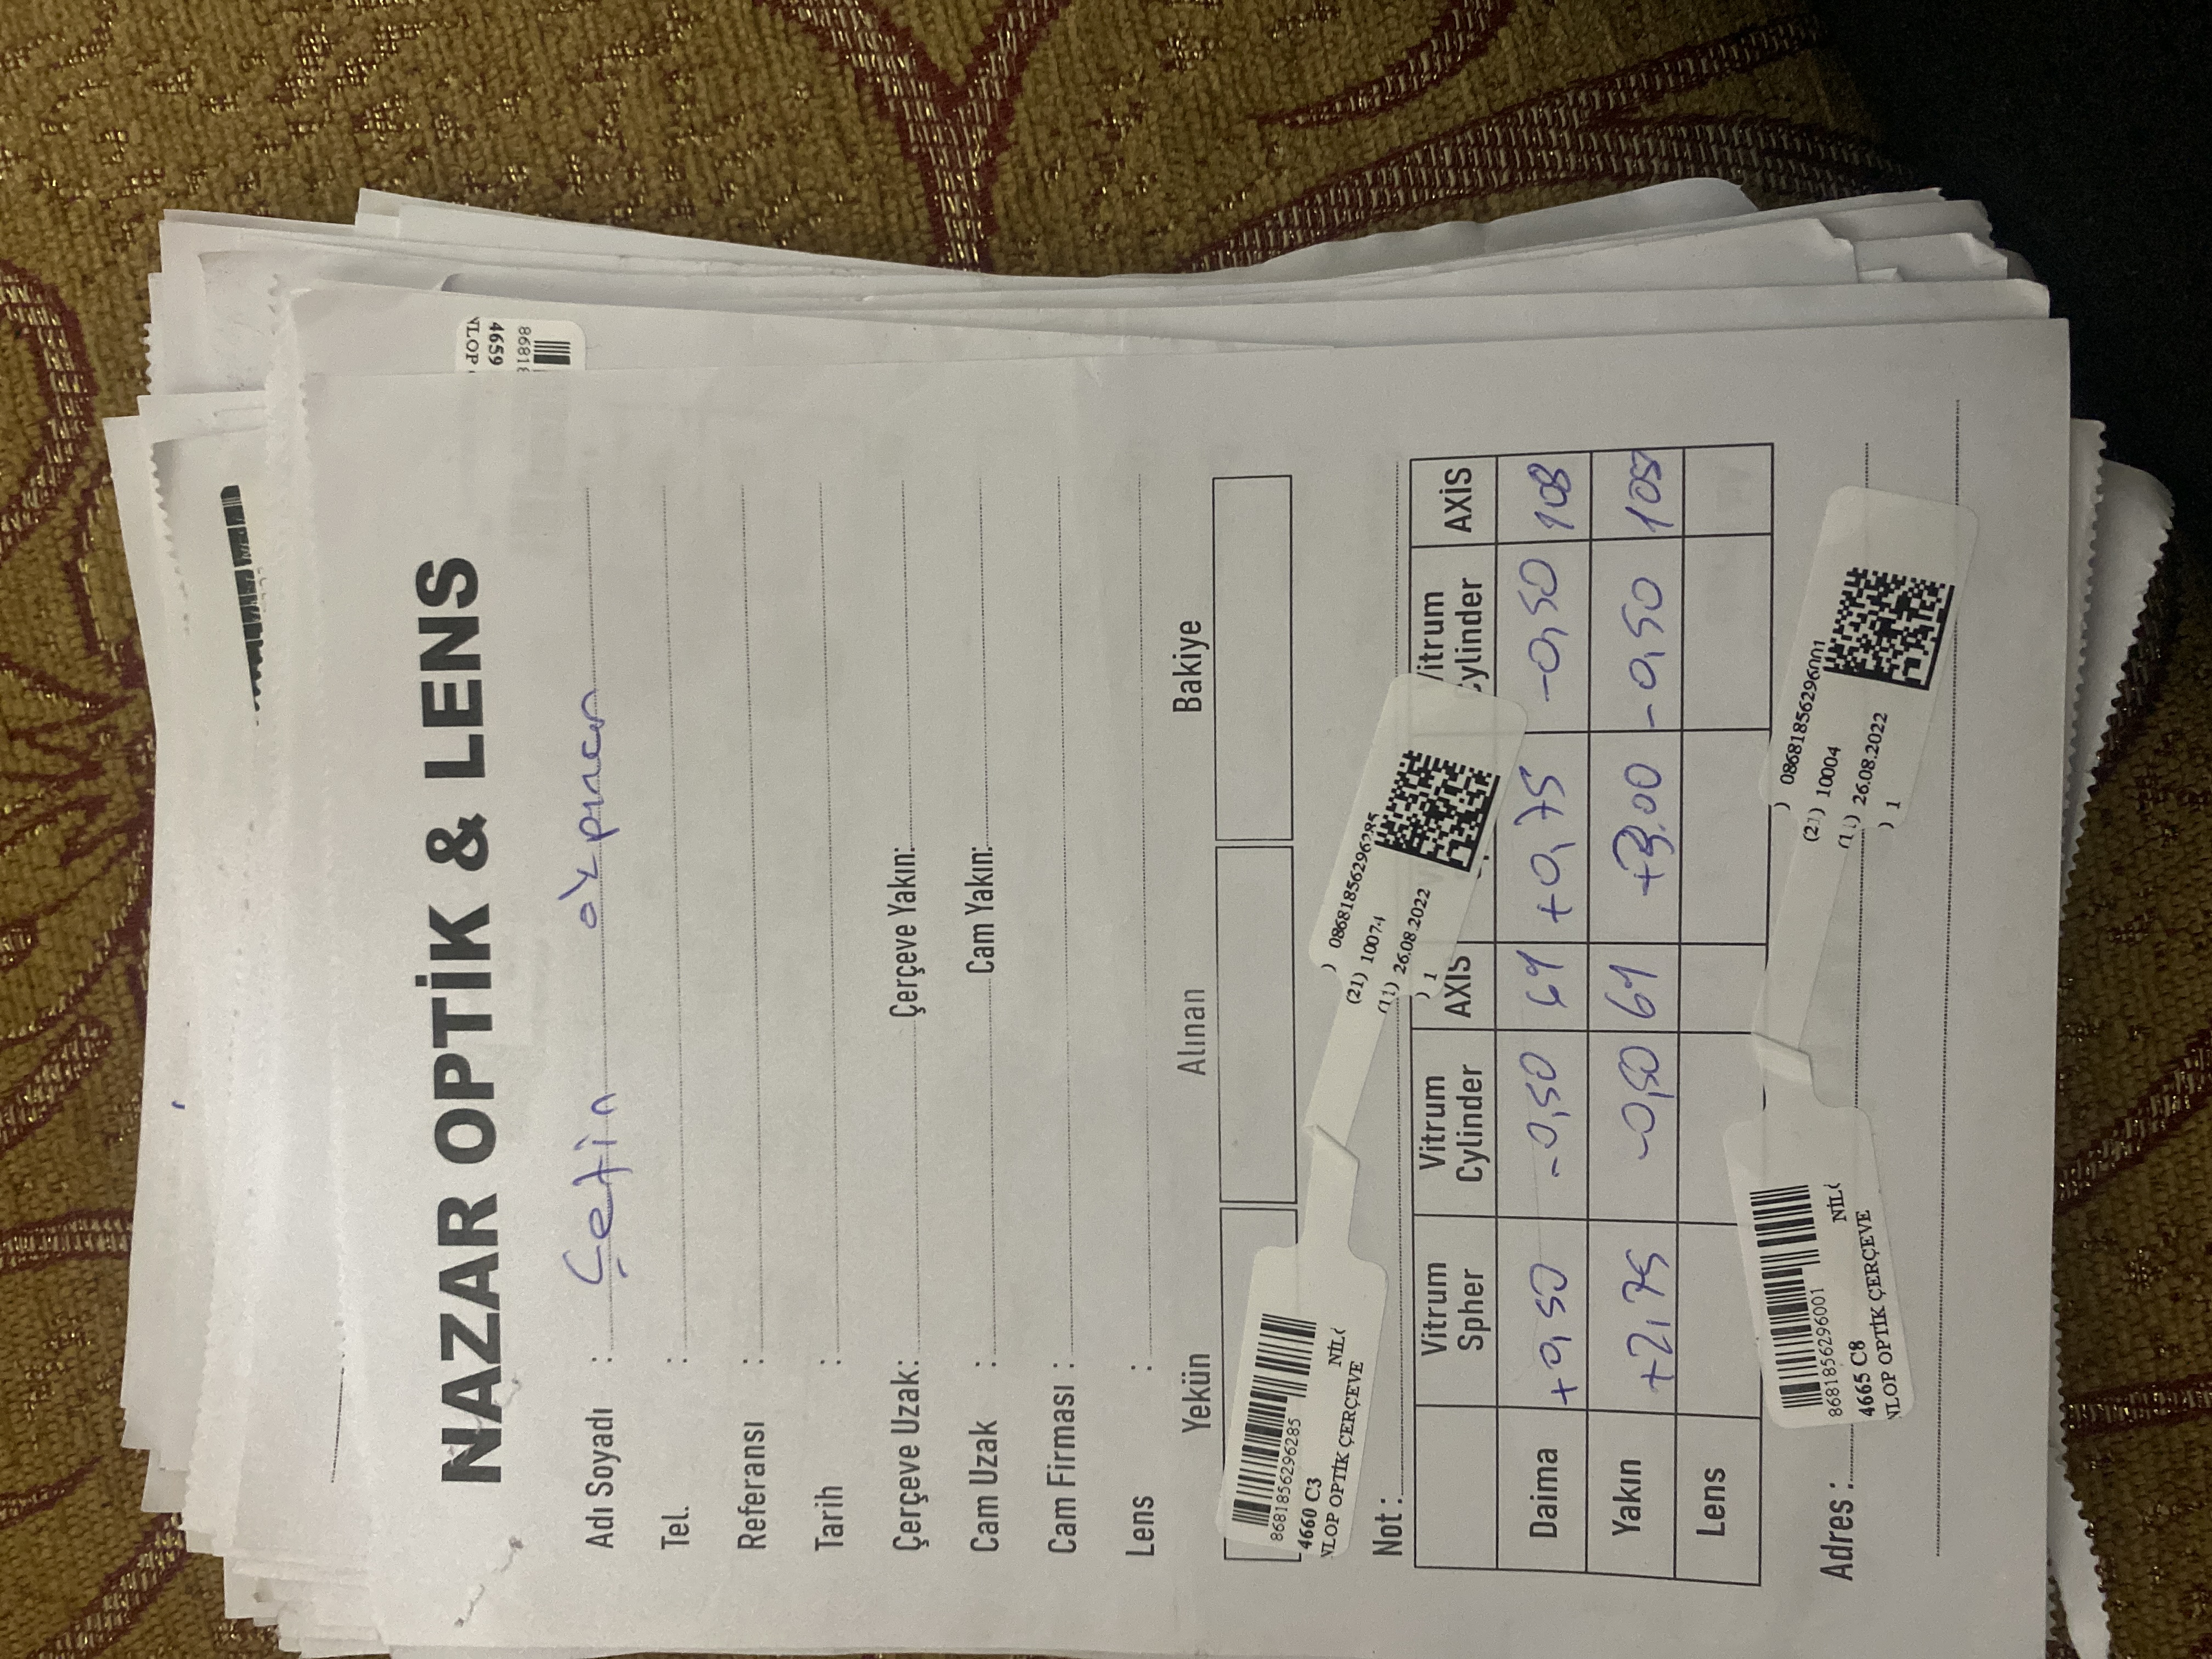 NAZAR OPTİK & LENS
Adı Soyadı : Çetin akpınar
Tel. :
Referansı :
Tarih :
Çerçeve Uzak: Çerçeve Yakın:
Cam Uzak : Cam Yakın:
Cam Firması :
Lens :
Yekün Alınan Bakiye
8681856296285
4660 C3 NİL
NLOP OPTİK ÇERÇEVE
) 08681856296285
(21) 10074
(11) 26.08.2022
) 1
Not :
Vitrum Spher Vitrum Cylinder AXİS Vitrum Cylinder AXİS
Daima +0,50 -0,50 61 +0,75 -0,50 108
Yakın +2,75 -0,50 61 +3.00 -0,50 108
Lens
8681856296001
4665 C8 NİL
NLOP OPTİK ÇERÇEVE
) 08681856296001
(21) 10004
(11) 26.08.2022
) 1
Adres :
NLOP
4659
86818